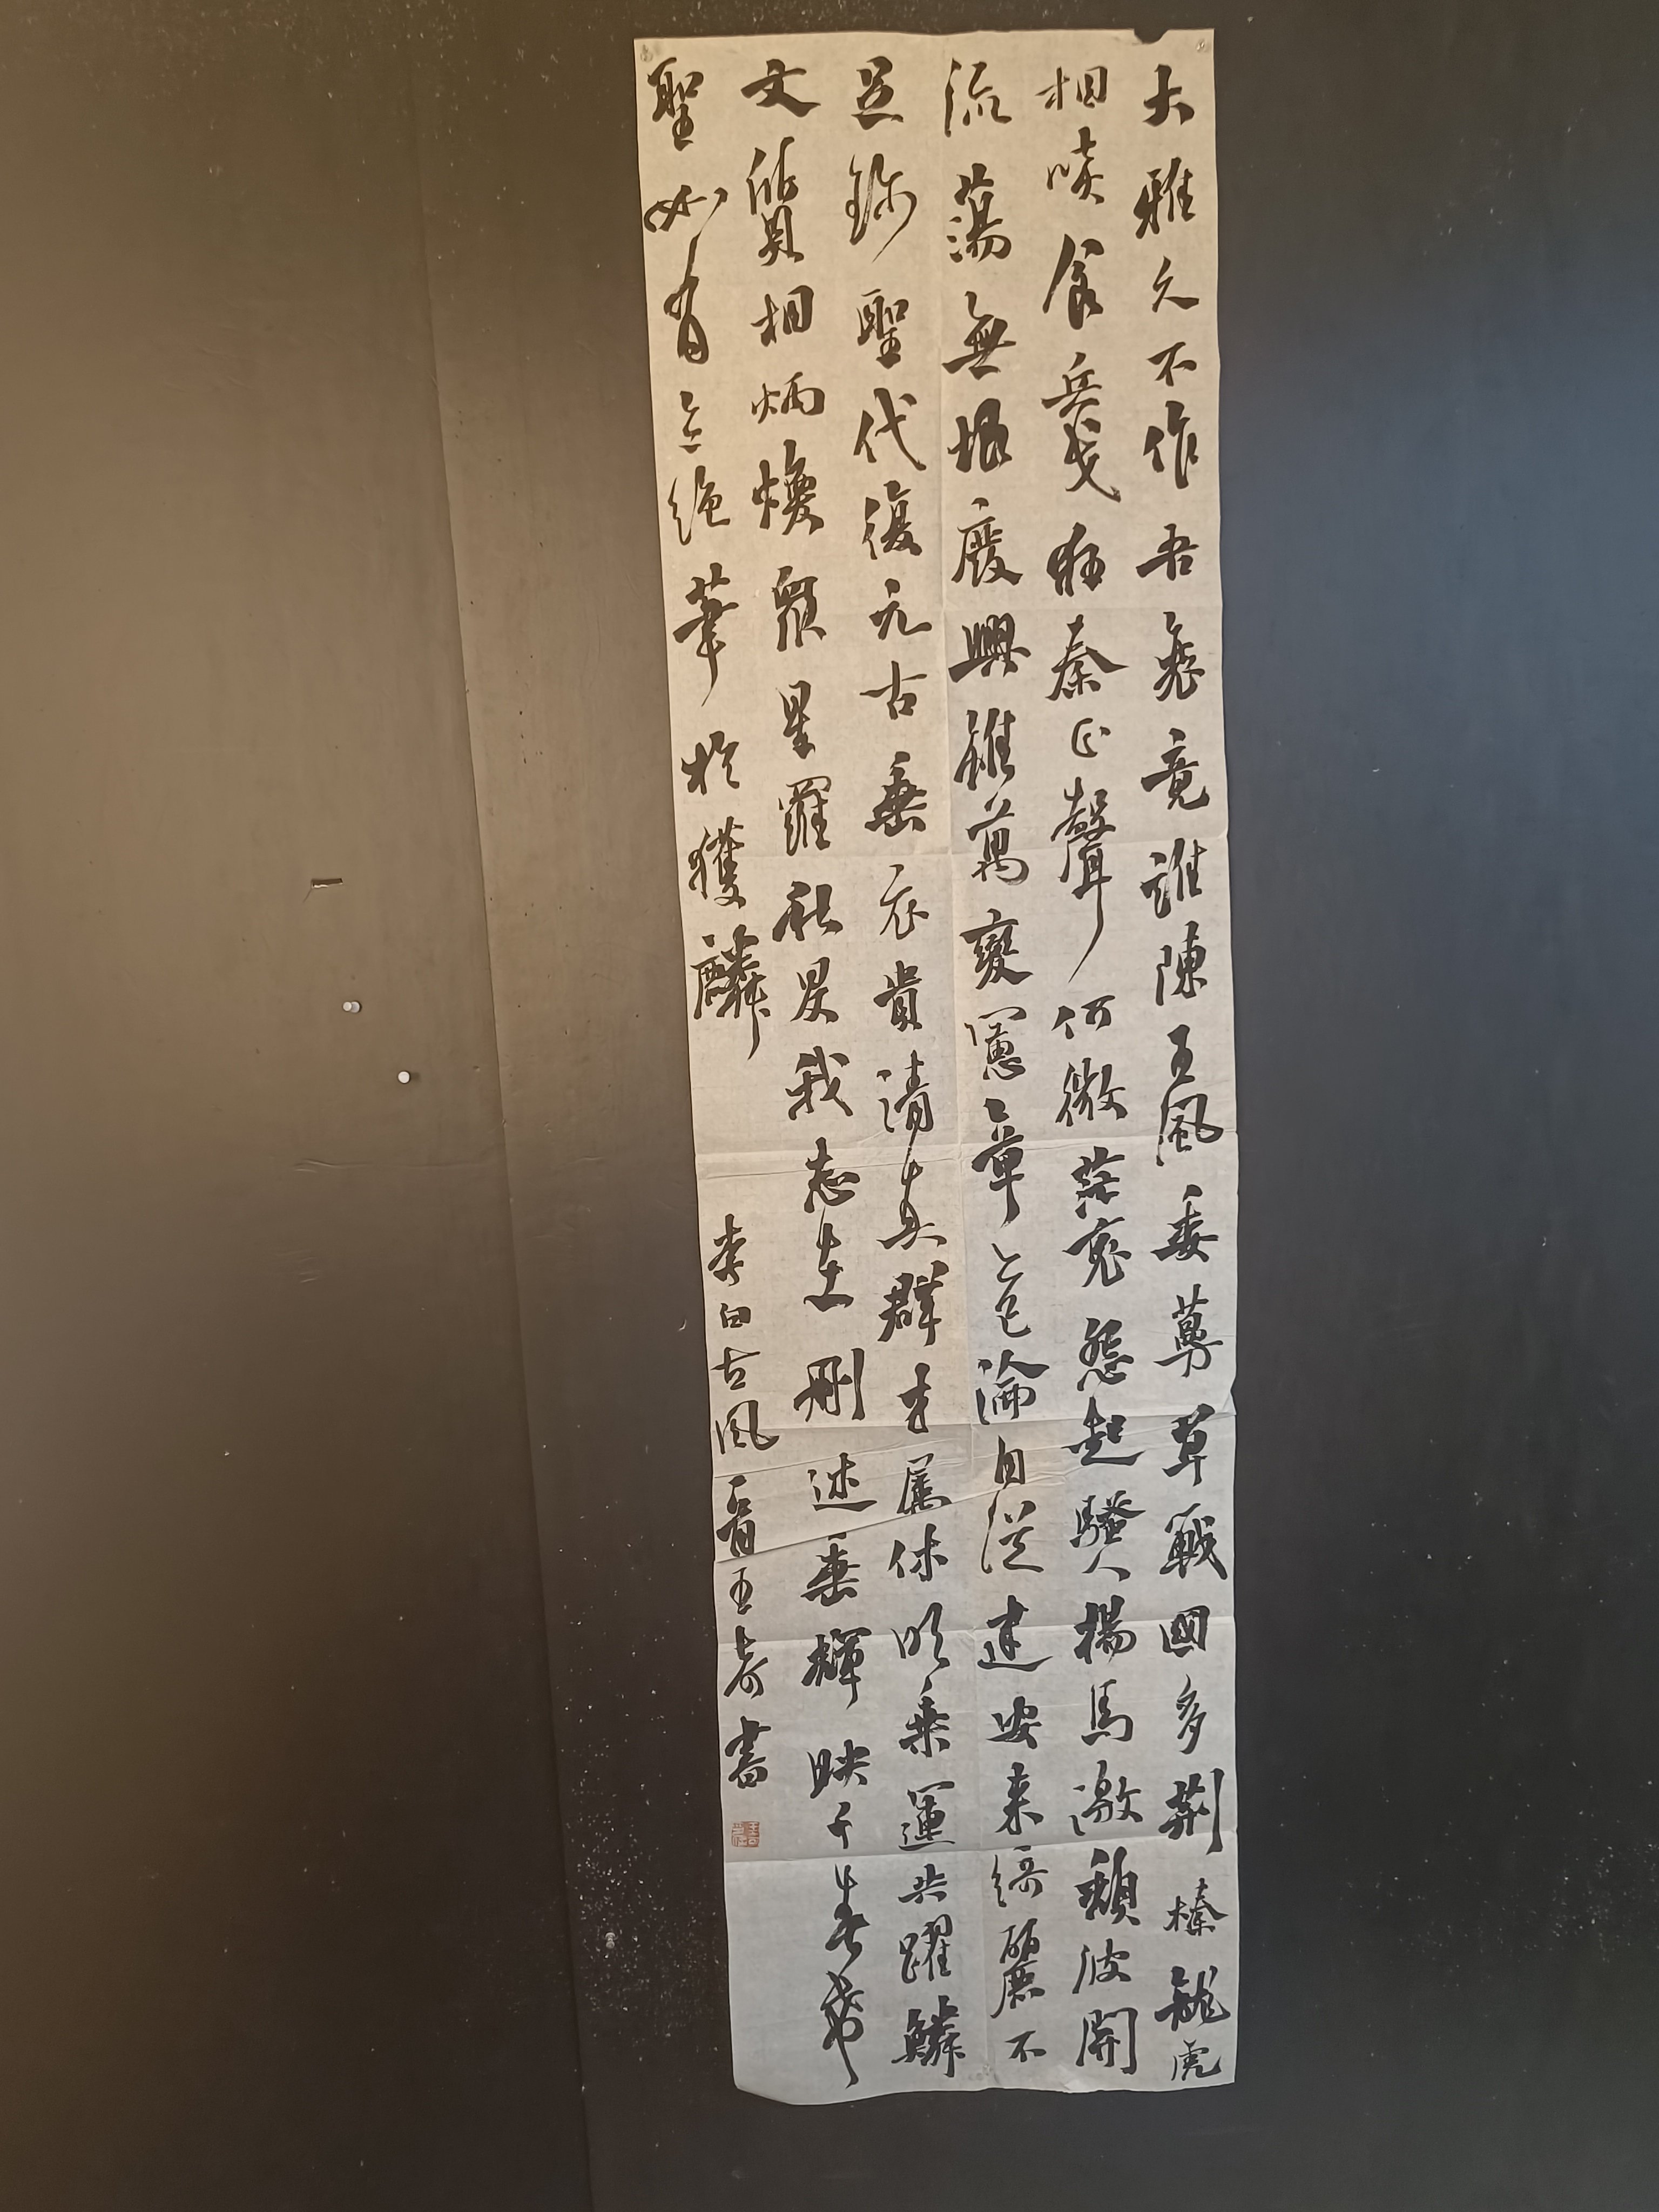 大雅久不作吾衰竟誰陳王風委蔓草戰國多荆榛龍虎
相啖食兵戈狂秦正聲何微茫哀怨起騷人揚馬激頹波開
流蕩無垠廢興雖萬變憲章亦已淪自從建安來綺麗不
足珍聖代復元古垂衣貴清真群才屬休明乘運共躍鱗
文質相炳煥眾星羅秋旻我志在刪述垂輝映千春希
聖如有立絕筆於獲麟
李白古風一首王書